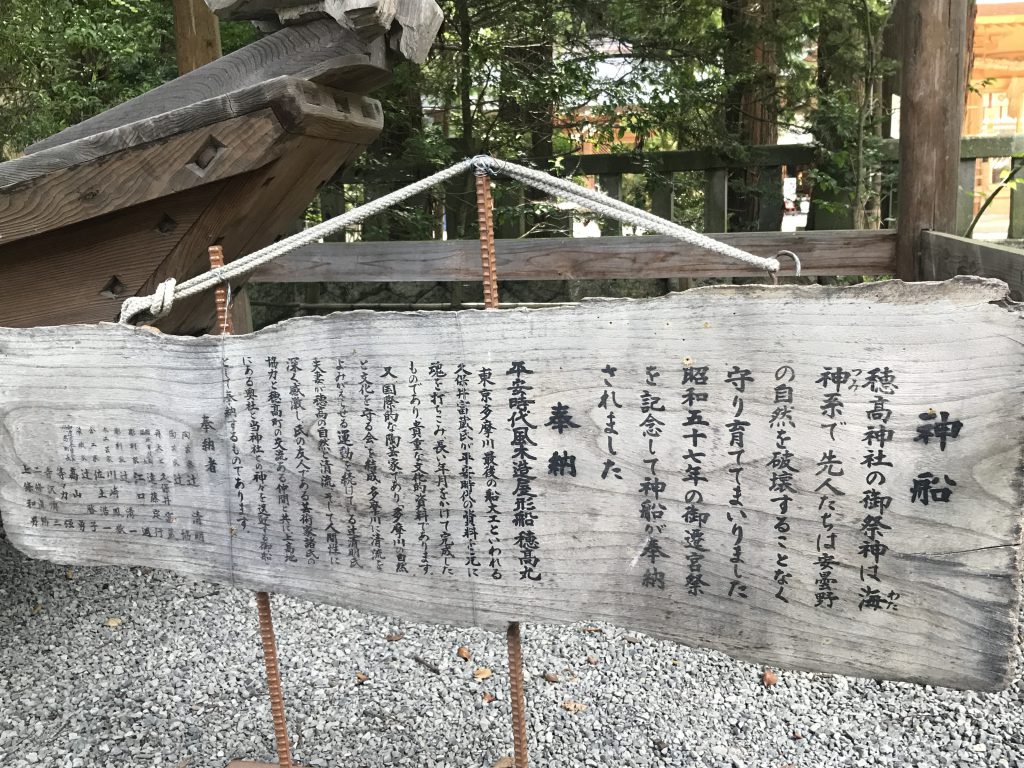 神船
穂高神社の御祭神は海
わた
神系で先人たちは安曇野
つみ
の自然を破壊することなく
守り育ててまいりました
昭和五十七年の御遷宮祭
を記念して神船が奉納
されました
奉納
平安時代風木造屋形船穂高丸
東京多摩川最後の船大工といわれる
久保井富武氏が平安時代の資料を元に
魂を打ちこみ長い年月をかけて完成した
ものであり貴重な文化的資料であります
又国際的な陶芸家であり多摩川の自然
と文化を守る会を結成多摩川に清流を
よみがえらせる運動を続けている辻清明氏
夫妻が穂高の自然と清流そして人間性に
深く感激し氏の友人である芸術家諸氏の
協力と穂高町の交流ある仲間と共に上高地
にある奥社と当神社への神火を送迎する船
として奉納するものであります
奉納者
辻 清明
辻
江口 滉
川崎
高山